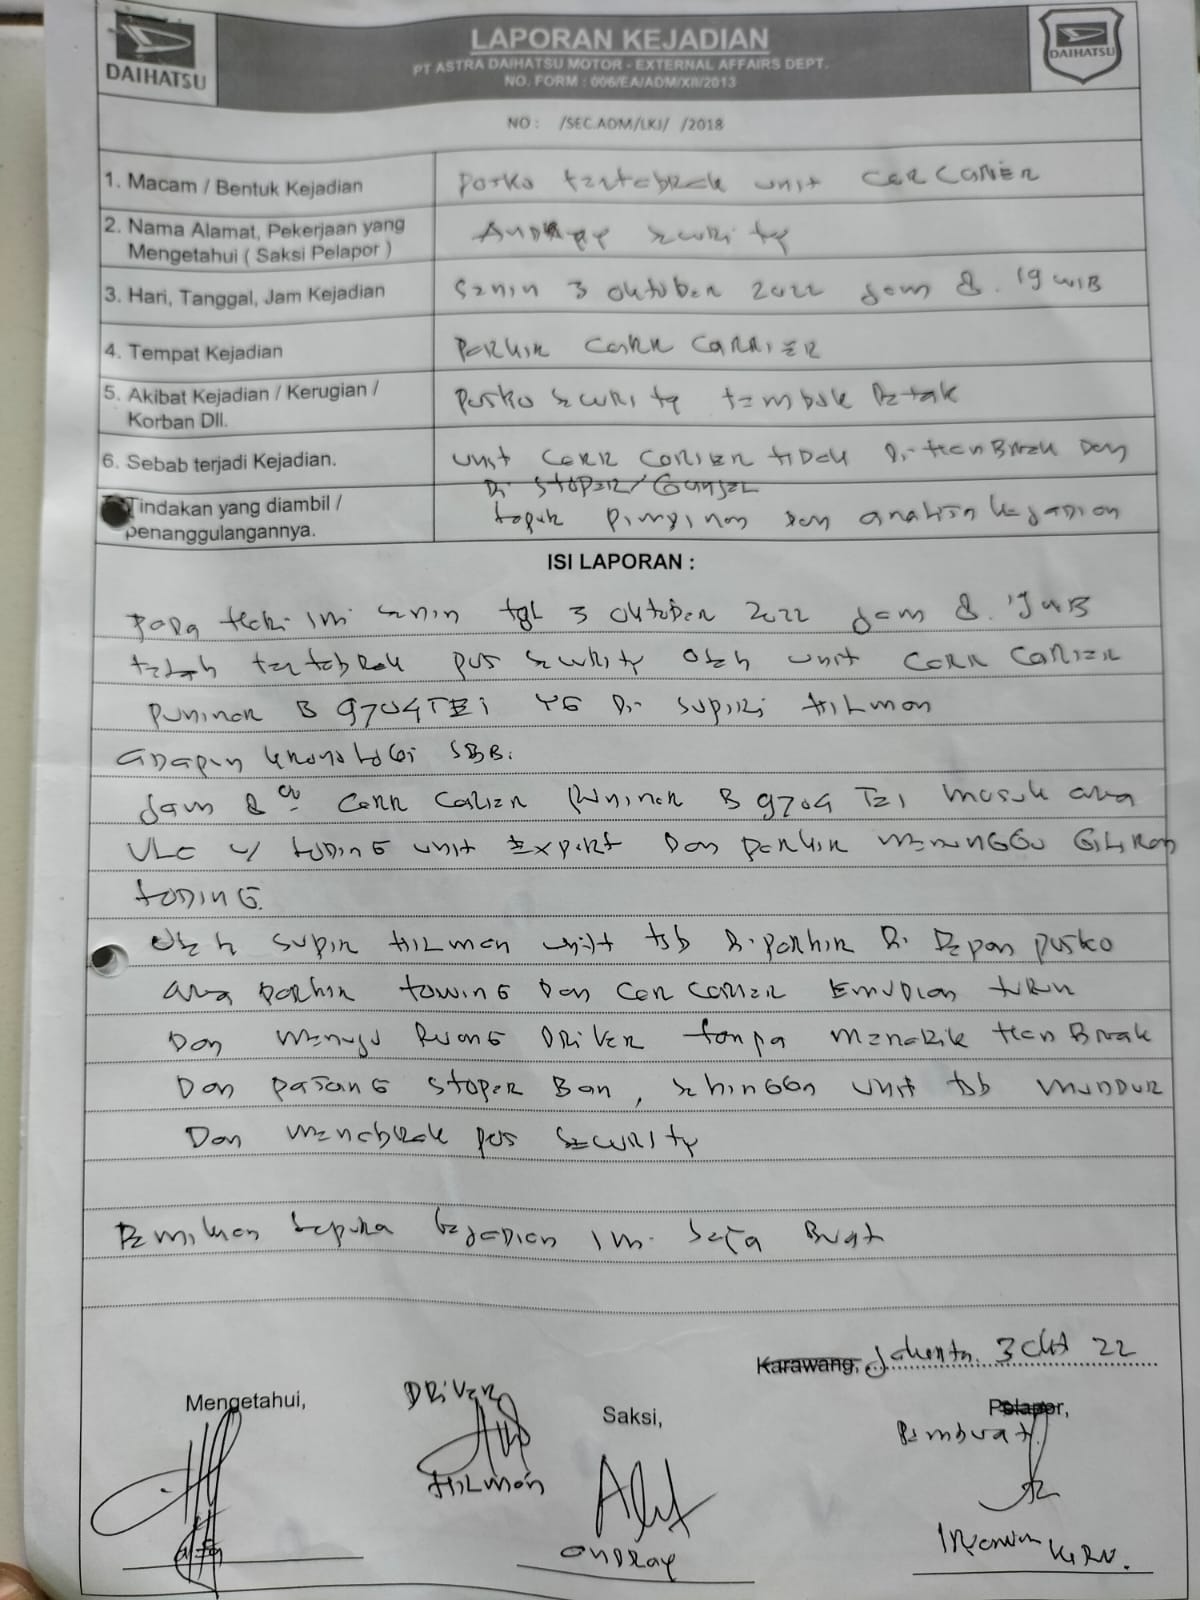 DAIHATSU
LAPORAN KEJADIAN
PT ASTRA DAIHATSU MOTOR - EXTERNAL AFFAIRS DEPT.
NO. FORM : 006/EA/ADM/XII/2013
DAIHATSU
NO : /SEC.ADM/LKJ/ /2018
1. Macam / Bentuk Kejadian Posko tertabrak unit car carier
2. Nama Alamat, Pekerjaan yang Mengetahui ( Saksi Pelapor ) Andray security
3. Hari, Tanggal, Jam Kejadian Senin 3 oktober 2022 jam 8. 19 WIB
4. Tempat Kejadian Parkir carr carrier
5. Akibat Kejadian / Kerugian / Korban Dll. Posko security tembok retak
6. Sebab terjadi Kejadian. unit carr carier tidak di Hand Break Dan
Di stoper/Ganjel
Tindakan yang diambil / penanggulangannya. lapor pimpinan dan analisa kejadian
ISI LAPORAN :
Pada Hari ini senin tgl 3 oktober 2022 jam 8. 19 WIB
telah tertabrak pos security oleh unit carr carier
Puninar B 9704 TEI YG Di supiri HILMAN
adapun kronologi SBB.
Jam 8 carr carier Puninar B 9704 TEI masuk area
VLC u/ loding unit Export Dan parkir menunggu Giliran
loding.
Oleh supir HILMAN unit tsb Diparkir Di Depan posko
area parkir towing Dan car carier kemudian turun
Dan menuju Ruang DRIVER tanpa menarik Hand Break
Dan pasang stoper Ban, sehingga unit tsb mundur
Dan menabrak pos security
Demikian laporan kejadian ini saya Buat
Karawang, Jakarta, 3 Okt 22
Mengetahui, DRIVER Saksi, Pelapor,
Pembuat
HILMAN
ANDRAY